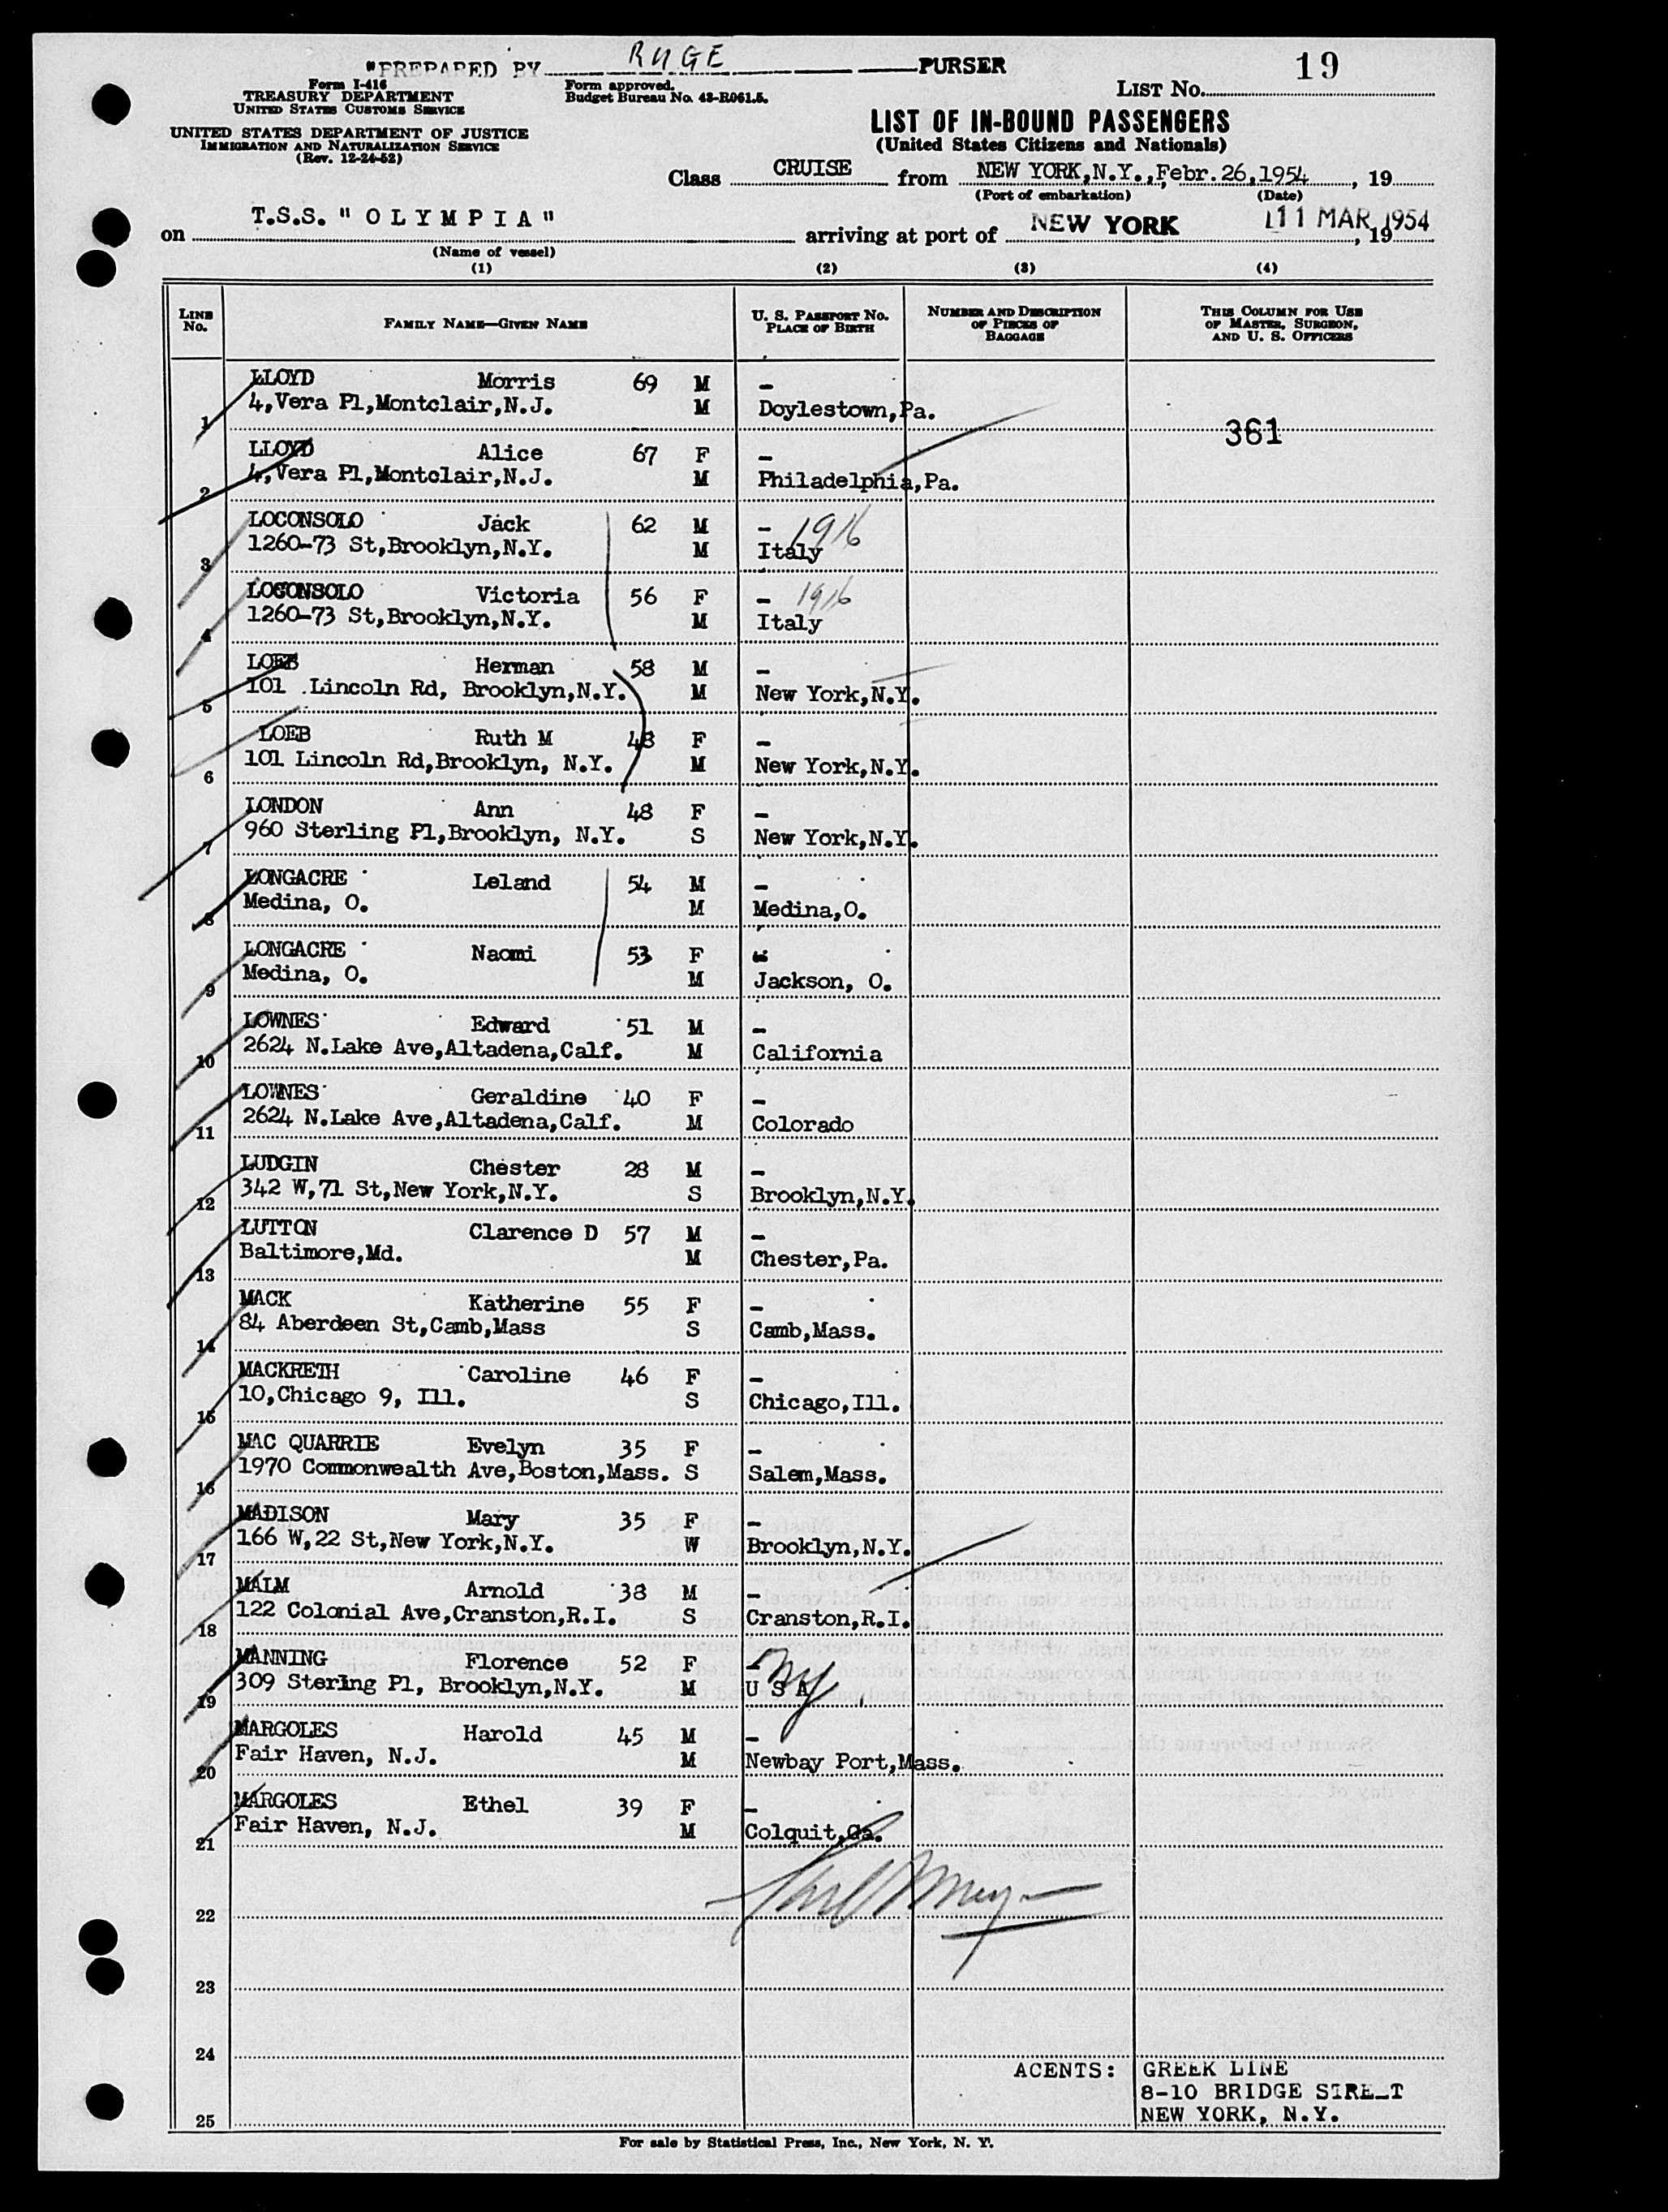 "PREPARED BY RUGE PURSER
19
Form I-416
TREASURY DEPARTMENT
UNITED STATES CUSTOMS SERVICE
Form approved.
Budget Bureau No. 43-R061.5.
LIST No.
UNITED STATES DEPARTMENT OF JUSTICE
IMMIGRATION AND NATURALIZATION SERVICE
(Rev. 12-24-52)
LIST OF IN-BOUND PASSENGERS
(United States Citizens and Nationals)
Class CRUISE from NEW YORK,N.Y.,Febr.26,1954, 19
(Port of embarkation) (Date)
on T.S.S. " O L Y M P I A " arriving at port of NEW YORK 11 MAR 1954, 19
(Name of vessel)
(1) (2) (3) (4)
LINE No. FAMILY NAME—GIVEN NAME U. S. PASSPORT No. PLACE OF BIRTH NUMBER AND DESCRIPTION OF PIECES OF BAGGAGE THIS COLUMN FOR USE OF MASTER, SURGEON, AND U. S. OFFICERS
LLOYD Morris 69 M –
1 4,Vera Pl,Montclair,N.J. M Doylestown,Pa.
361
LLOYD Alice 67 F –
2 4,Vera Pl,Montclair,N.J. M Philadelphia,Pa.
LOCONSOLO Jack 62 M – 1916
3 1260-73 St,Brooklyn,N.Y. M Italy
LOCONSOLO Victoria 56 F – 1916
4 1260-73 St,Brooklyn,N.Y. M Italy
LOEB Herman 58 M –
5 101 .Lincoln Rd, Brooklyn,N.Y. M New York,N.Y.
LOEB Ruth M 48 F –
6 101 Lincoln Rd,Brooklyn, N.Y. M New York,N.Y.
LONDON Ann 48 F –
7 960 Sterling Pl,Brooklyn, N.Y. S New York,N.Y.
LONGACRE Leland 54 M –
8 Medina, O. M Medina,O.
LONGACRE Naomi 53 F –
9 Medina, O. M Jackson, O.
LOWNES Edward 51 M –
10 2624 N.Lake Ave,Altadena,Calf. M California
LOWNES Geraldine 40 F –
11 2624 N.Lake Ave,Altadena,Calf. M Colorado
LUDGIN Chester 28 M –
12 342 W,71 St,New York,N.Y. S Brooklyn,N.Y.
LUTTON Clarence D 57 M –
13 Baltimore,Md. M Chester,Pa.
MACK Katherine 55 F –
14 84 Aberdeen St,Camb,Mass S Camb,Mass.
MACKRETH Caroline 46 F –
15 10,Chicago 9, Ill. S Chicago,Ill.
MAC QUARRIE Evelyn 35 F –
16 1970 Commonwealth Ave,Boston,Mass. S Salem,Mass.
MADISON Mary 35 F –
17 166 W,22 St,New York,N.Y. W Brooklyn,N.Y.
MALM Arnold 38 M –
18 122 Colonial Ave,Cranston,R.I. S Cranston,R.I.
MANNING Florence 52 F – NY
19 309 Sterlng Pl, Brooklyn,N.Y. M U S A
MARGOLES Harold 45 M –
20 Fair Haven, N.J. M Newbay Port,Mass.
MARGOLES Ethel 39 F –
21 Fair Haven, N.J. M Colquit,Ga.
22
23
24
AGENTS: GREEK LINE
8-10 BRIDGE STREET
25 NEW YORK, N.Y.
For sale by Statistical Press, Inc., New York, N. Y.